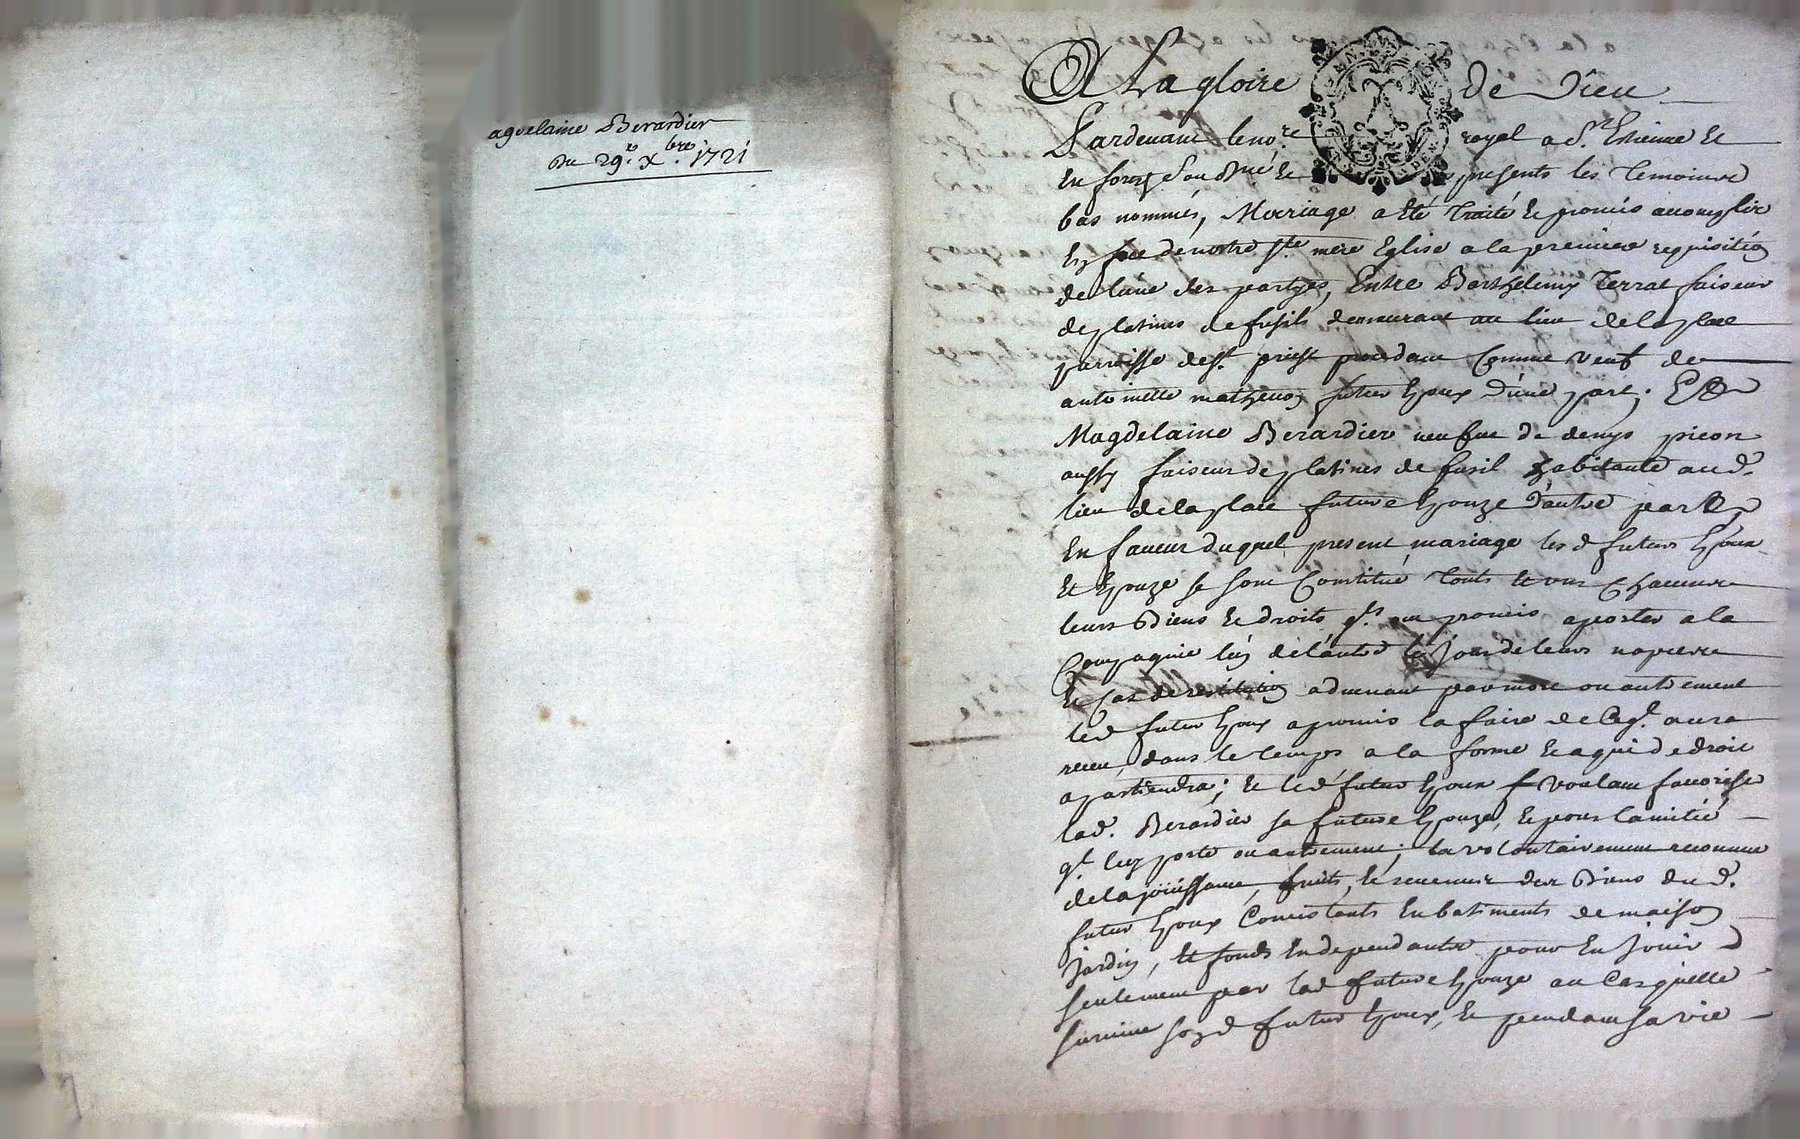 agdelaine Berardier
Du 29.e Xbre. 1721
A La gloire de Dieu
Pardevant le nore. royal a St. Etienne Et
En forez Soubné Et presents les Temoins
bas nommés, Mariage a Eté Traité Et promis accomplir
En face de nostre Ste. mere Eglise a la premiere requisition
de l'une des partyes, Entre Barthelemy Terrat faiseur
de platines de fusils demeurant au lieu de la place
parroisse de St. priest procedant Comme veuf de
antoinette mathevon futur Epoux d'une part; Et
Magdelaine Berardier veufve de denys picon
aussy faiseur de platines de fusil habitante aud.
lieu de la place future Epouze d'autre part
En faveur duquel present mariage lesd futurs Epoux
Et Epouze se sont Constitué touts Et uns Chacuns
leurs Biens Et droits qls. ont promis aporter a la
Compagnie l'un de l'autre le Jour de leurs nopces
Et Cas de restitution advenant par mort ou autrement
led futur Epoux a promis la faire de Ce ql. aura
receu dans le temps a la forme Et a qui de droit
apartiendra; Et led futur Epoux voulant favoriser
lad. Berardier sa future Epouze, Et pour l'amitié
ql. luy porte ou autrement; la volontairement
de la jouissance, fruits, Et revenus des Biens dud.
futur Epoux Consistants En batiments de maison
Jardin, Et fonds En dependants pour En Jouir
seulement par lad future Epouze au Cas quelle
survive sond futur Epoux, Et pendant sa vie